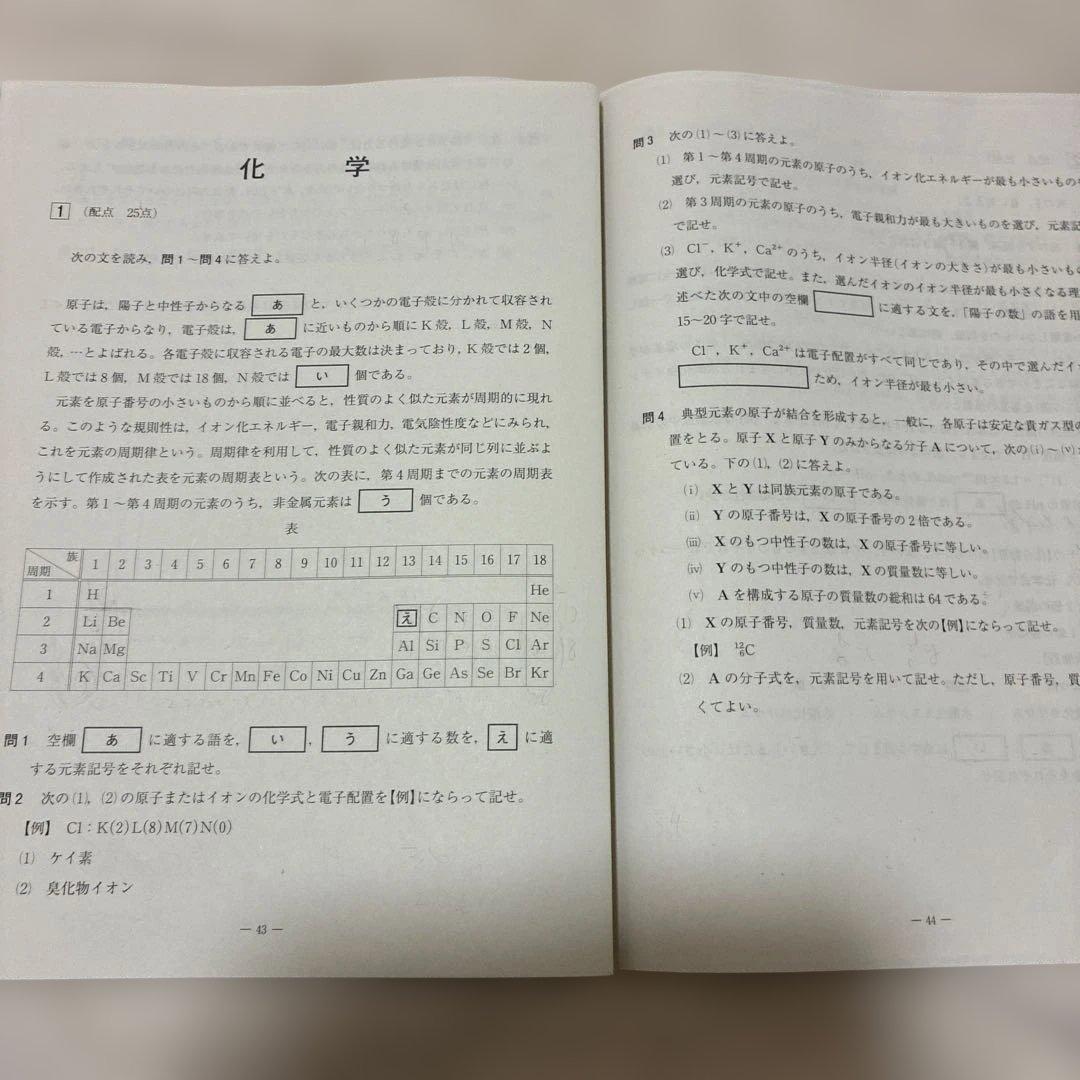 化　学
1 （配点　25点）
次の文を読み，問1～問4に答えよ。
原子は，陽子と中性子からなる あ と，いくつかの電子殻に分かれて収容され
ている電子からなり，電子殻は， あ に近いものから順にK殻，L殻，M殻，N
殻，…とよばれる。各電子殻に収容される電子の最大数は決まっており，K殻では2個，
L殻では8個，M殻では18個，N殻では い 個である。
元素を原子番号の小さいものから順に並べると，性質のよく似た元素が周期的に現れ
る。このような規則性は，イオン化エネルギー，電子親和力，電気陰性度などにみられ，
これを元素の周期律という。周期律を利用して，性質のよく似た元素が同じ列に並ぶよ
うにして作成された表を元素の周期表という。次の表に，第4周期までの元素の周期表
を示す。第1～第4周期の元素のうち，非金属元素は う 個である。
表
族 周期 1 2 3 4 5 6 7 8 9 10 11 12 13 14 15 16 17 18
1 H He
2 Li Be え C N O F Ne
3 Na Mg Al Si P S Cl Ar
4 K Ca Sc Ti V Cr Mn Fe Co Ni Cu Zn Ga Ge As Se Br Kr
問1　空欄 あ に適する語を， い ， う に適する数を， え に適
する元素記号をそれぞれ記せ。
問2　次の(1)，(2)の原子またはイオンの化学式と電子配置を【例】にならって記せ。
【例】　Cl：K(2)L(8)M(7)N(0)
(1)　ケイ素
(2)　臭化物イオン
— 43 —
問3　次の(1)～(3)に答えよ。
(1)　第1～第4周期の元素の原子のうち，イオン化エネルギーが最も小さいもの
選び，元素記号で記せ。
(2)　第3周期の元素の原子のうち，電子親和力が最も大きいものを選び，元素記
で記せ。
(3)　Cl⁻，K⁺，Ca²⁺のうち，イオン半径(イオンの大きさ)が最も小さいもの
選び，化学式で記せ。また，選んだイオンのイオン半径が最も小さくなる理
述べた次の文中の空欄　　に適する文を，「陽子の数」の語を用
15～20字で記せ。
Cl⁻，K⁺，Ca²⁺は電子配置がすべて同じであり，その中で選んだイ
ため，イオン半径が最も小さい。
問4　典型元素の原子が結合を形成すると，一般に，各原子は安定な貴ガス型の
置をとる。原子Xと原子Yのみからなる分子Aについて，次の(i)～(v)
ている。下の(1)，(2)に答えよ。
(i)　XとYは同族元素の原子である。
(ii)　Yの原子番号は，Xの原子番号の2倍である。
(iii)　Xのもつ中性子の数は，Xの原子番号に等しい。
(iv)　Yのもつ中性子の数は，Xの質量数に等しい。
(v)　Aを構成する原子の質量数の総和は64である。
(1)　Xの原子番号，質量数，元素記号を次の【例】にならって記せ。
【例】　¹²₆C
(2)　Aの分子式を，元素記号を用いて記せ。ただし，原子番号，質
くてよい。
— 44 —